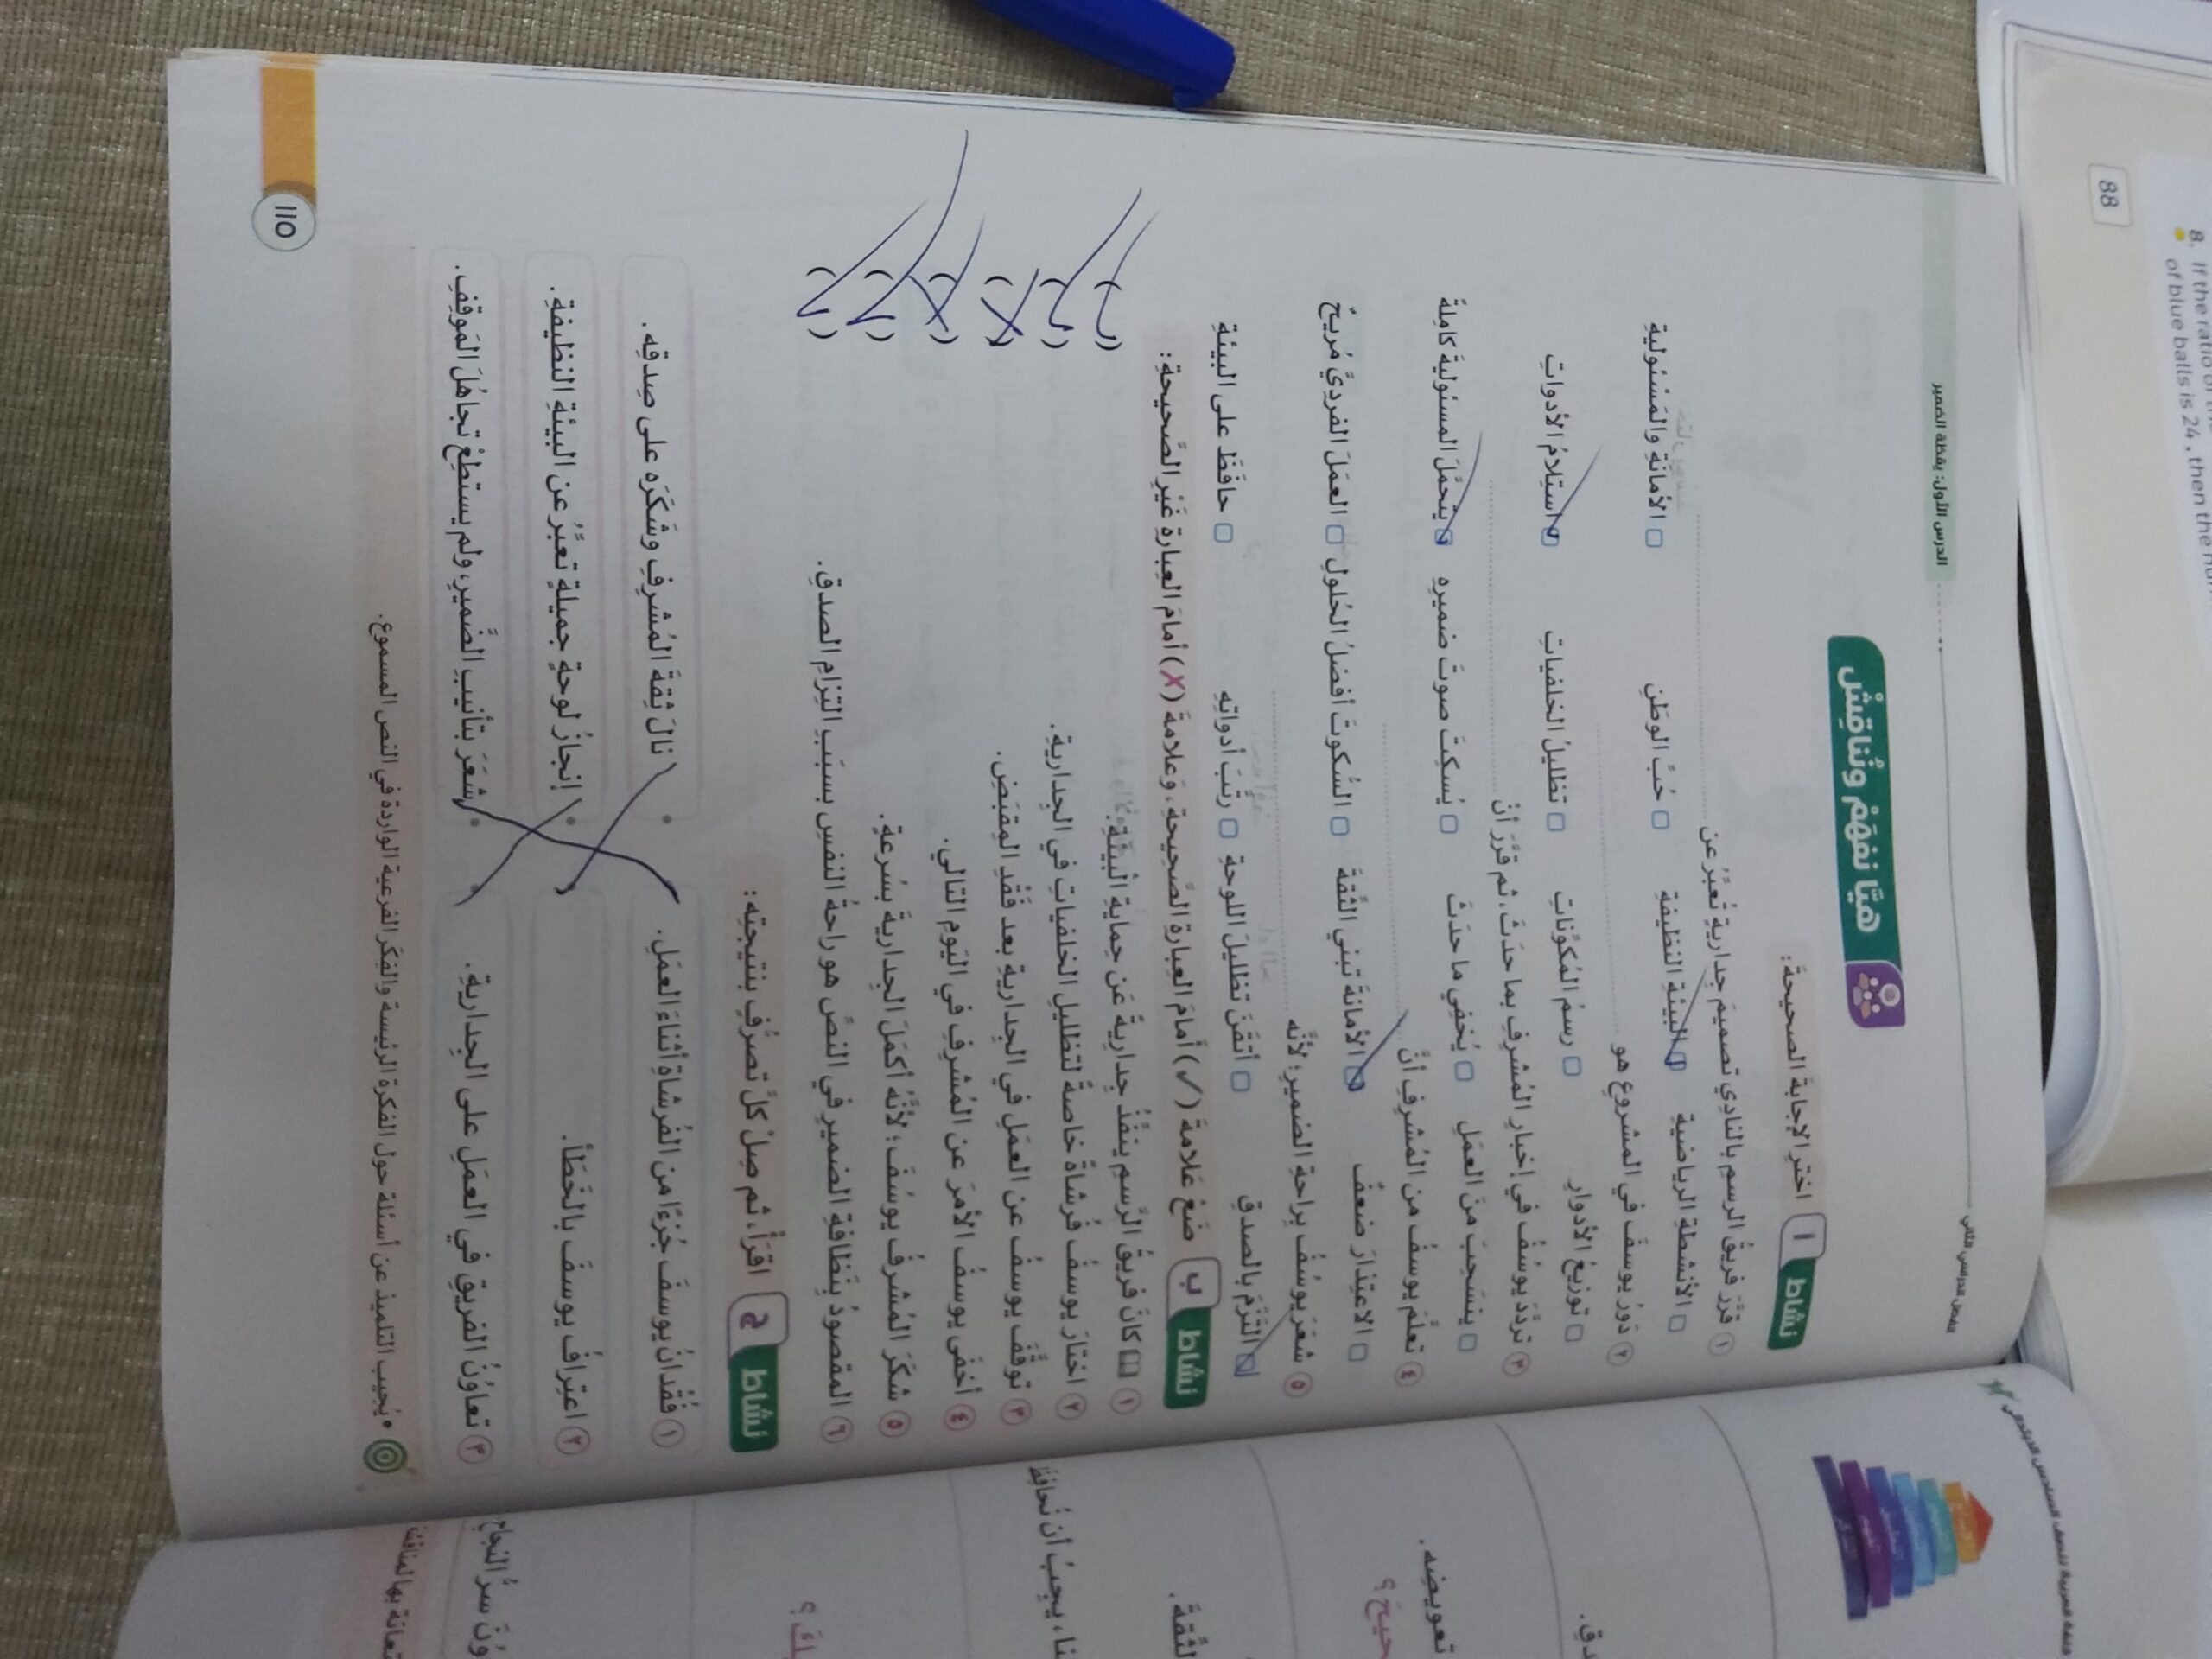 الدرس الأول: يقظة الضمير
هيّا نفهَمْ ونُناقِشْ
نشاط أ اختَرِ الإجابةَ الصحيحةَ:
١ قرَّرَ فريقُ الرسمِ بالنادِي تصميمَ جِداريةٍ تُعبِّرُ عن
الأنشطةِ الرياضيةِ البيئةِ النظيفةِ حُبِّ الوطَنِ الأمانَةِ والمَسْئوليةِ
٢ دَورُ يوسفَ في المشروعِ هو
توزيعُ الأدوارِ رسمُ المُكوِّناتِ تظليلُ الخلفياتِ استِلامُ الأدواتِ
٣ تردَّدَ يوسُفُ في إخبارِ المُشرِفِ بما حدَثَ، ثم قرَّرَ أنْ
ينسَحِبَ منَ العمَلِ يُخفِي ما حدَثَ يُسكِتَ صوتَ ضميرِهِ يتحمَّلَ المسئوليةَ كامِلةً
٤ تعلَّمَ يوسفُ من المُشرِفِ أنَّ
الاعتِذارَ ضعفٌ الأمانةَ تبني الثِّقةَ السُّكوتَ أفضلُ الحُلولِ العمَلَ الفرديَّ مُريحٌ
٥ شعَرَ يوسُفُ بِراحةِ الضميرِ؛ لأنَّه
التَزَمَ بالصدقِ أتقَنَ تظليلَ اللوحةِ رتَّبَ أدواتِهِ حافَظَ على البيئةِ
نشاط ب ضَعْ عَلامةَ (✓) أمامَ العِبارةِ الصَّحِيحةِ، وَعَلامةَ (X) أمامَ العِبارةِ غَيْرِ الصَّحيحةِ:
١ كانَ فريقُ الرَّسمِ ينفِّذُ جِداريةً عَن حِمايةِ الْبِيئَةِ. (✓)
٢ اختارَ يوسفُ فُرشاةً خاصةً لتظليلِ الخلفياتِ في الجِداريةِ. (✓)
٣ توقَّفَ يوسفُ عن العمَلِ في الجِداريةِ بعد فَقْدِ المِقبَضِ. (X)
٤ أخفَى يوسفُ الأمرَ عن المُشرِفِ في اليَومِ التالي. (X)
٥ شكَرَ المُشرفُ يوسُفَ؛ لأنَّهُ أكمَلَ الجِداريةَ بسُرعةٍ. (✓)
٦ المقصودُ بِنَظافةِ الضميرِ في النصِّ هو راحةُ النفسِ بسبَبِ التِزامِ الصدقِ. (✓)
نشاط ج اقرَأْ، ثم صِلْ كلَّ تصرُّفٍ بنتيجتِه:
١ فُقدانُ يوسفَ جُزءًا من الفُرشاةِ أثناءَ العمَلِ. نالَ ثِقةَ المُشرِفِ وشَكَرَه على صِدقِه.
٢ اعتِرافُ يوسفَ بالخَطَأِ. إنجازُ لوحةٍ جميلةٍ تعبِّرُ عن البيئةِ النظيفةِ.
٣ تعاوُنُ الفريقِ في العمَلِ على الجِداريةِ. شعَرَ بتأنيبِ الضَّميرِ، ولم يستطِعْ تجاهُلَ المَوقِفِ.
• يُجيب التلميذ عن أسئلة حول الفكرة الرئيسة والفِكَر الفرعية الواردة في النص المسموع.
١١٥
88
8. If the ratio of the
of blue balls is 24 , then the
دقِ.
تعويضِه.
حيحَ؟
لثِّقةَ.
نا، يجِبُ أن نُحافِظَ
لكَ؟
ونَ سرُّ النجاحِ